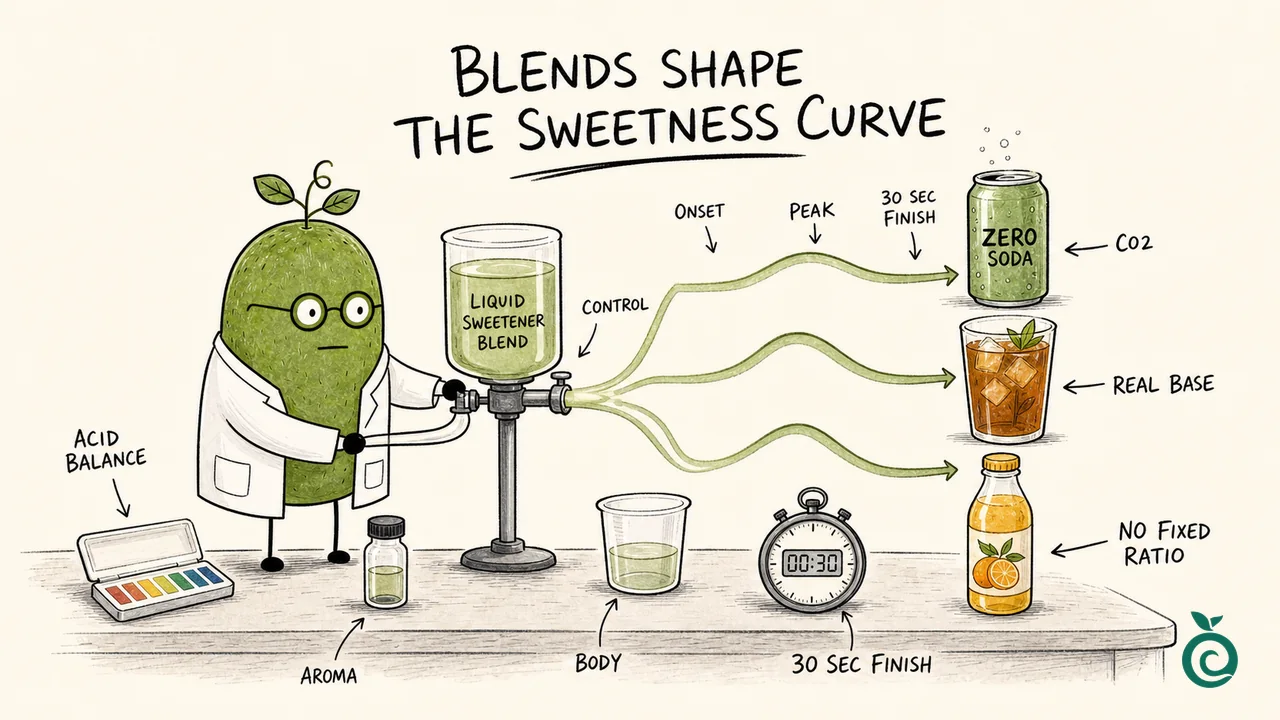 BLENDS SHAPE
THE SWEETNESS CURVE
ONSET
PEAK
30 SEC
FINISH
ZERO
SODA
CO2
LIQUID
SWEETENER
BLEND
CONTROL
REAL BASE
ACID
BALANCE
00:30
NO FIXED
RATIO
AROMA
BODY
30 SEC FINISH